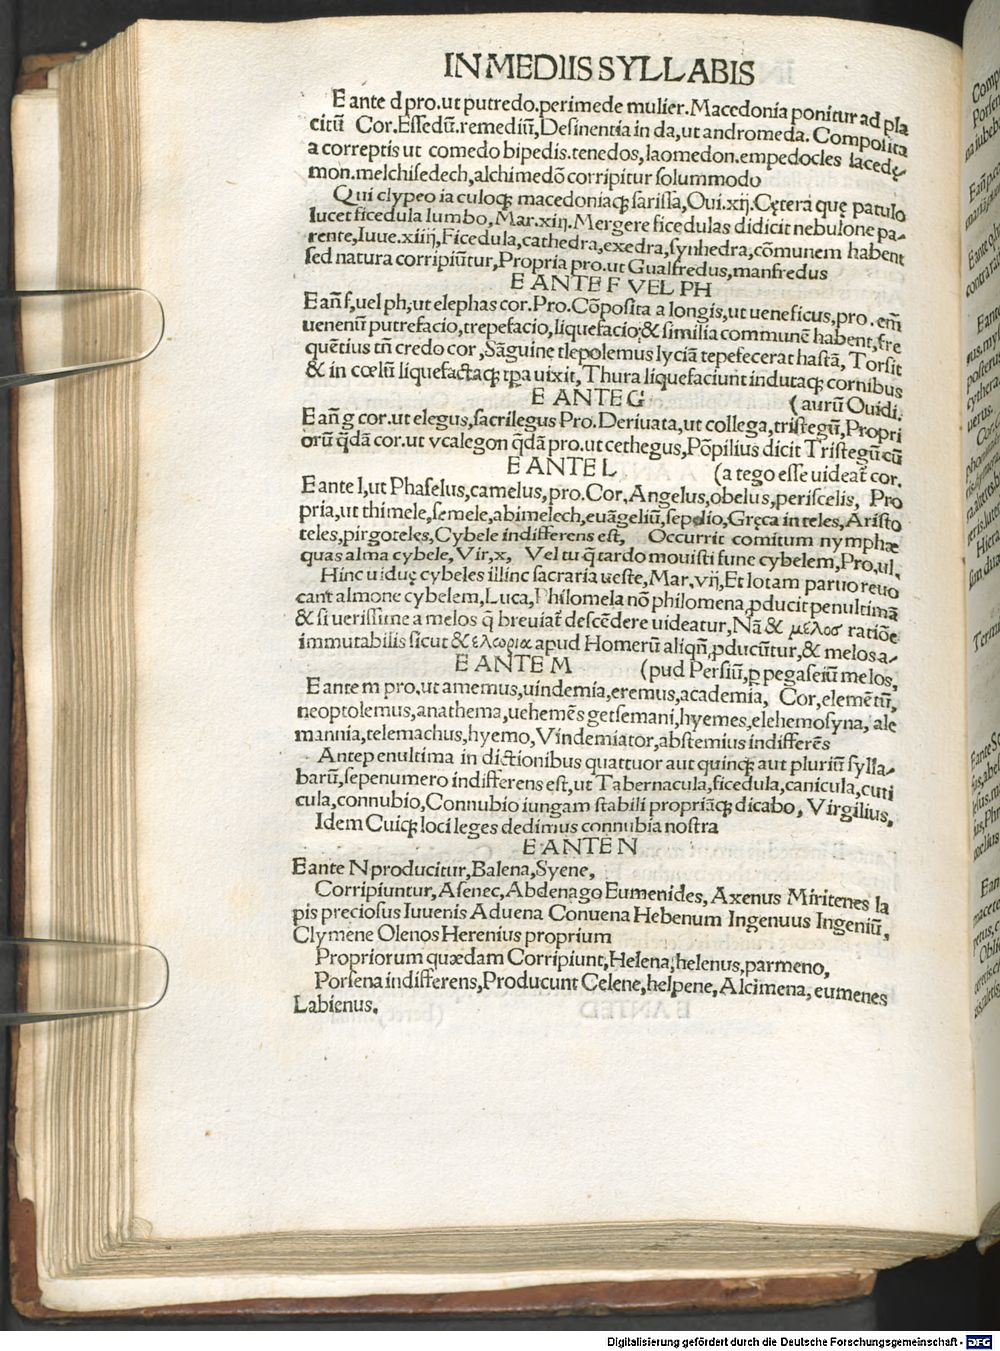 IN MEDIIS SYLLABIS
E ante d pro.ut putredo.perimede mulier.Macedonia ponitur ad pla
citū Cor.Essedū.remediū,Desinentia in da,ut andromeda. Composita
a correptis ut comedo bipedis.tenedos,laomedon.empedocles lacedę⸗
mon.melchisedech,alchimedō corripitur solummodo
Qui clypeo ia culoqꝫ macedoniaqꝫ sarissa,Oui.xij.Cętera quę patulo
lucet ficedula lumbo, Mar.xiij.Mergere ficedulas didicit nebulone pa⸗
rente,Iuue.xiiij,Ficedula,cathedra,exedra,synhedra,cōmunem habent
sed natura corripiūtur,Propria pro.ut Gualfredus,manfredus
E ANTE F VEL PH
E añ f,uel ph;ut elephas cor.Pro.Cōposita a longis,ut ueneficus,pro.em̄
uenenū putrefacio,trepefacio,liquefacio;& similia communē habent,fre
quētius tñ credo cor,Sāguine tlepolemus lyciā tepefecerat hastā, Torsit
& in cœlū liquefactaqꝫ tꝑa uixit, Thura liquefaciunt indutaqꝫ cornibus
E ANTE G (aurū Ouidi.
E añ g cor.ut elegus,sacrilegus Pro.Deriuata,ut collega,tristegū,Propri
orū q̄dā cor.ut vcalegon q̄dā pro.ut cethegus,Pōpilius dicit Tristegū cū
E ANTE L (a tego esse uideat̄ cor.
E ante l,ut Phaselus,camelus,pro.Cor.Angelus,obelus,periscelis, Pro
pria,ut thimele,semele,abimelech,euāgeliū,sepelio,Gręca in teles, Aristo
teles,pirgoteles,Cybele indifferens est, Occurrit comitum nymphæ
quas alma cybele,Vir,x, Vel tu q̄ tardo mouisti fune cybelem,Pro,ul.
Hinc uiduę cybeles illinc sacraria ueste,Mar.vij,Et lotam paruo reuo
cant almone cybelem,Luca,Philomela nō philomena,ꝓducit penultimā
& si uerissime a melos q̄ breuiat̄ descēdere uideatur,Nā & μελοσ ratiōe
immutabilis sicut & ελωρια apud Homerū aliqñ,ꝓducūtur,& melos a⸗
E ANTE M (pud Persiū,ꝑ pegaseiū melos,
E ante m pro.ut amemus,uindemia,eremus,academia, Cor,elemētū,
neoptolemus,anathema,uehemēs getsemani,hyemes,elehemosyna, ale
mannia,telemachus,hyemo,Vindemiator,abstemius indifferēs
Antepenultima in dictionibus quattuor aut quinqꝫ aut pluriū sylla⸗
barū,sepenumero indifferens est,ut Tabernacula,ficedula,canicula,cuti
cula,connubio,Connubio iungam stabili propriāqꝫ dicabo, Virgilius.
Idem Cuiqꝫ loci leges dedimus connubia nostra
E ANTE N
E ante N producitur,Balena,Syene,
Corripiuntur,Asenec,Abdenago Eumenides, Axenus Miritenes la
pis preciosus Iuuenis Aduena Conuena Hebenum Ingenuus Ingeniū,
Clymene Olenos Herenius proprium
Propriorum quædam Corripiunt,Helena,helenus,parmeno,
Porsena indifferens,Producunt Celene,helpene,Alcimena,eumenes
Labienus.
Digitalisierung gefördert durch die Deutsche Forschungsgemeinschaft - DFG